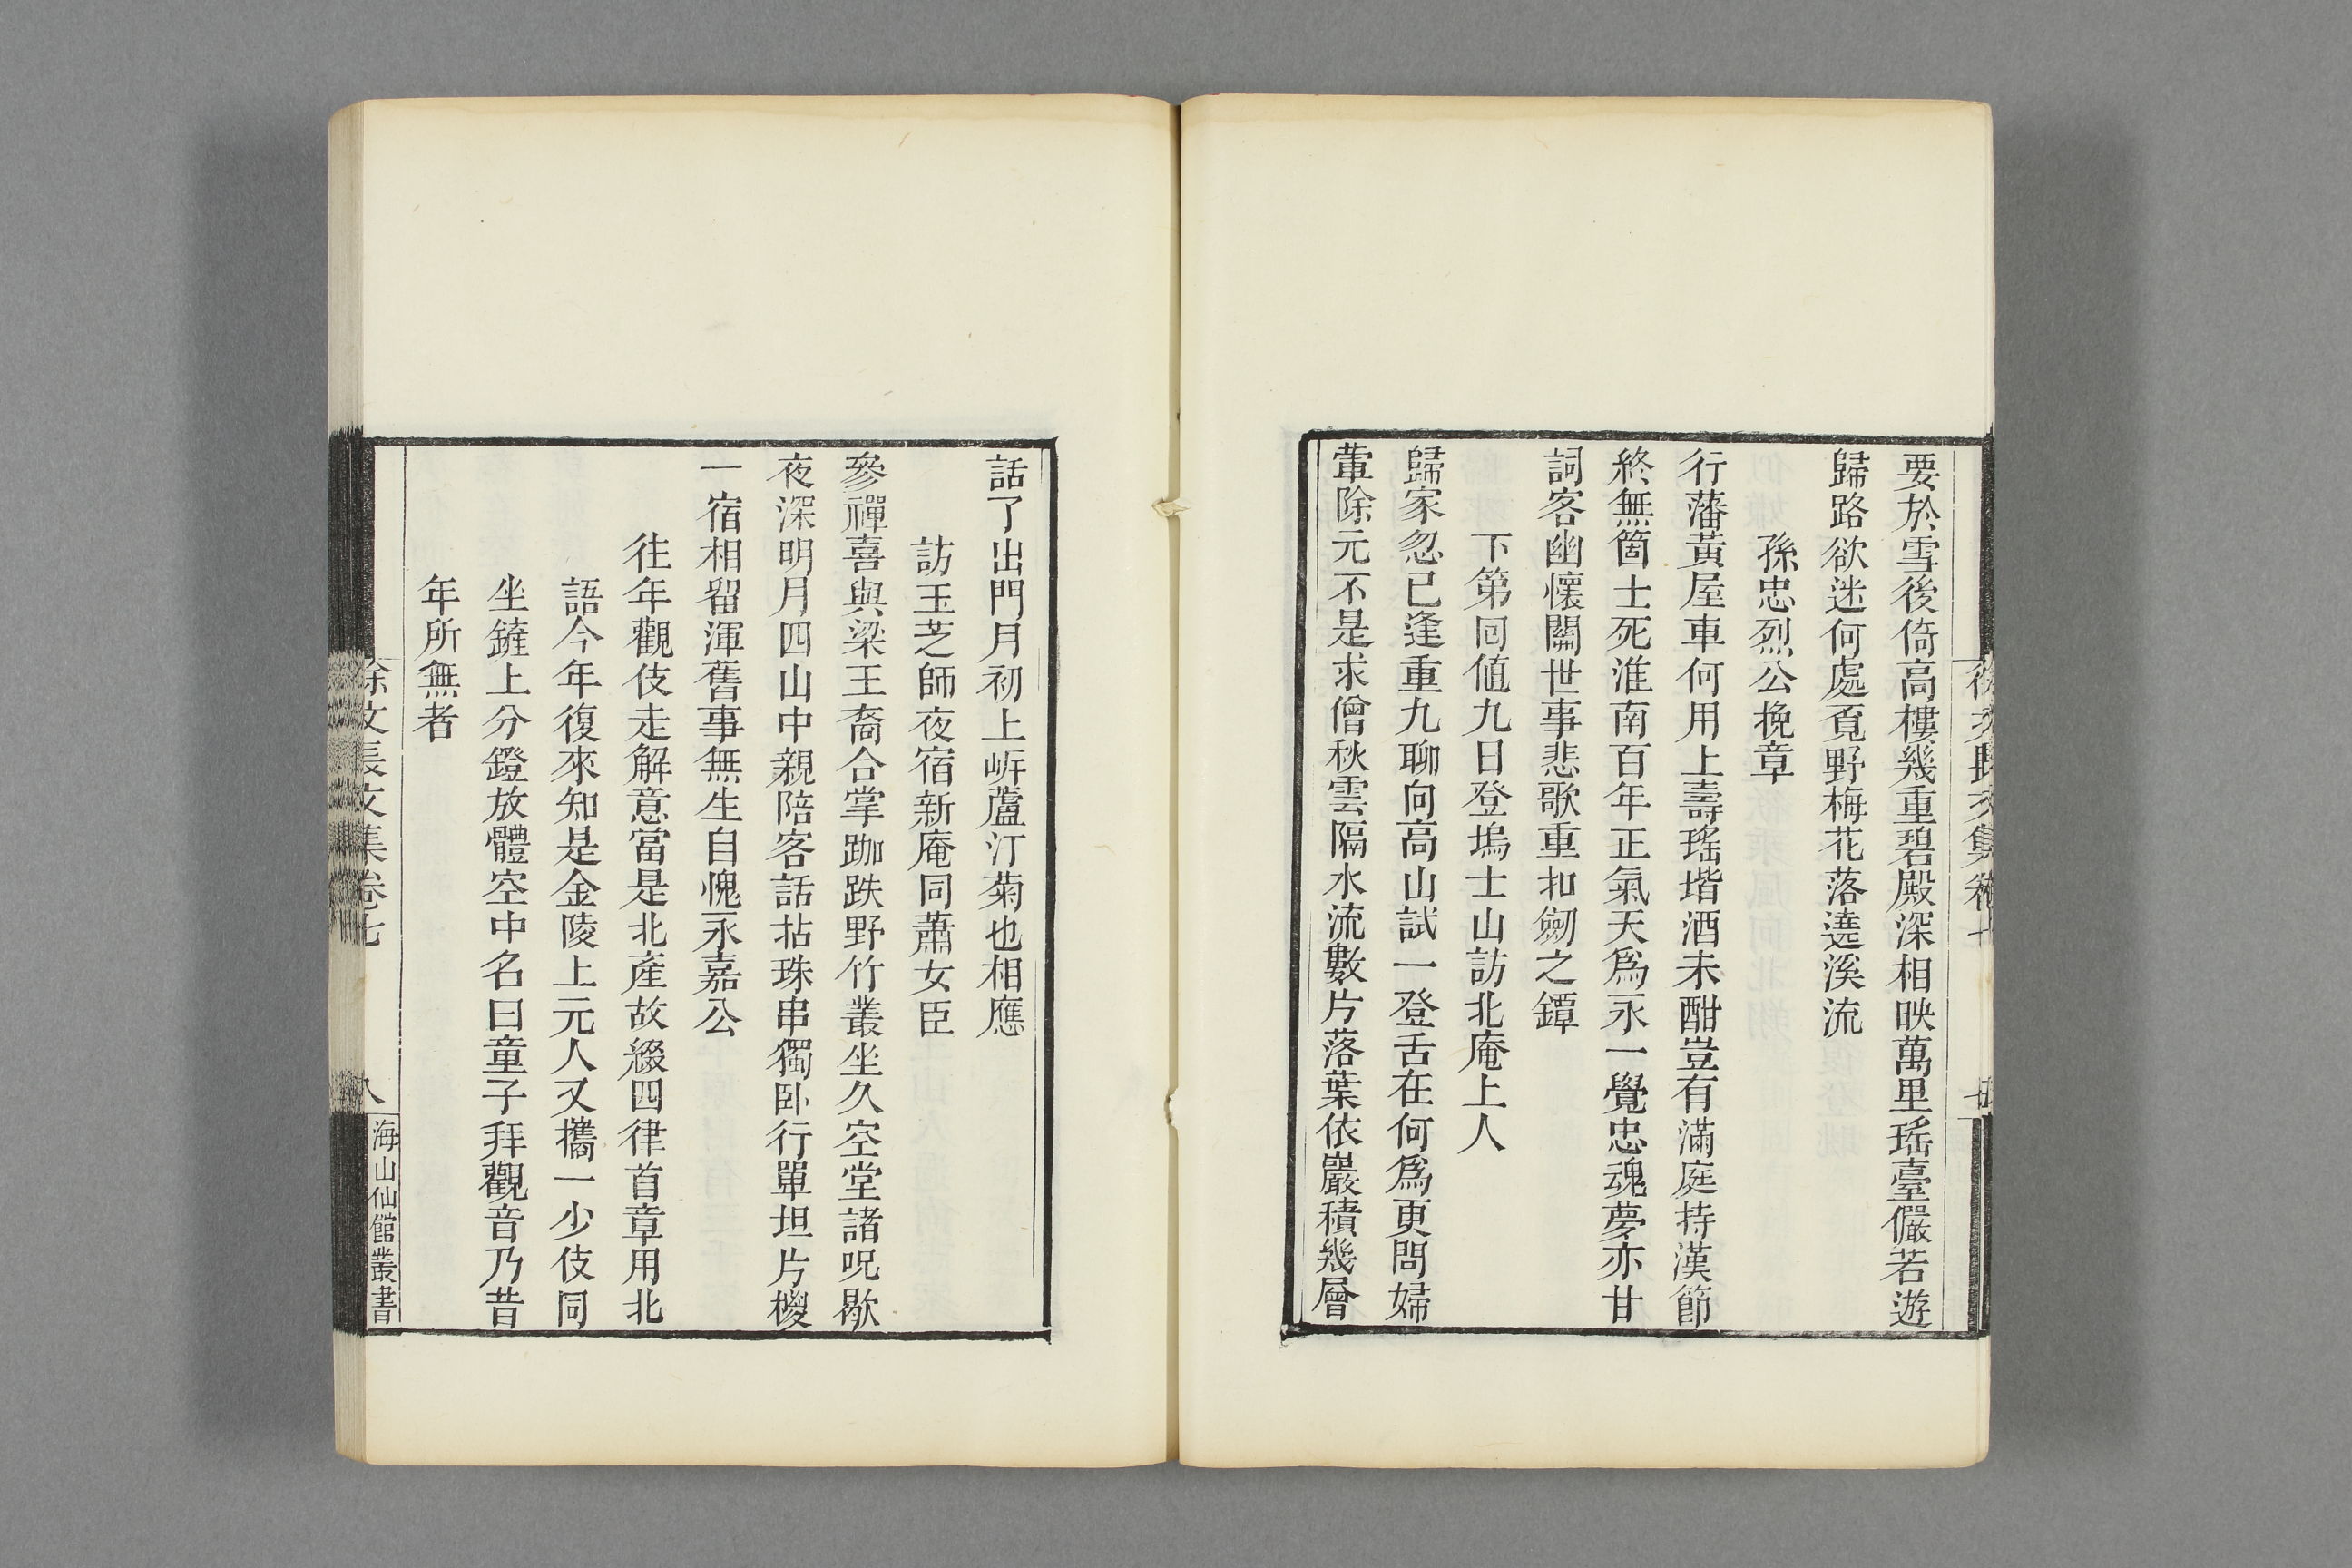 要於雪後倚高樓幾重碧殿深相映萬里瑤臺儼若遊
歸路欲迷何處覓野梅花落遶溪流
孫忠烈公挽章
行藩黃屋車何用上壽瑤堦酒未酣豈有滿庭持漢節
終無箇士死淮南百年正氣天爲永一覺忠魂夢亦甘
詞客幽懷關世事悲歌重扣劒之鐔
下第回值九日登塢士山訪北庵上人
歸家忽已逢重九聊向高山試一登舌在何爲更問婦
葷除元不是求僧秋雲隔水流數片落葉依巖積幾層
話了出門月初上㟁蘆汀菊也相應
訪玉芝師夜宿新庵同蕭女臣
參禪喜與梁王裔合掌跏趺野竹叢坐久空堂諸呪歇
夜深明月四山中親陪客話拈珠串獨卧行單坦片㮣
一宿相留渾舊事無生自愧永嘉公
往年觀伎走解意當是北產故綴四律首章用北
語今年復來知是金陵上元人又攜一少伎同
坐鏟上分鐙放體空中名曰童子拜觀音乃昔
年所無者
徐文長文集卷七
八
海山仙館叢書